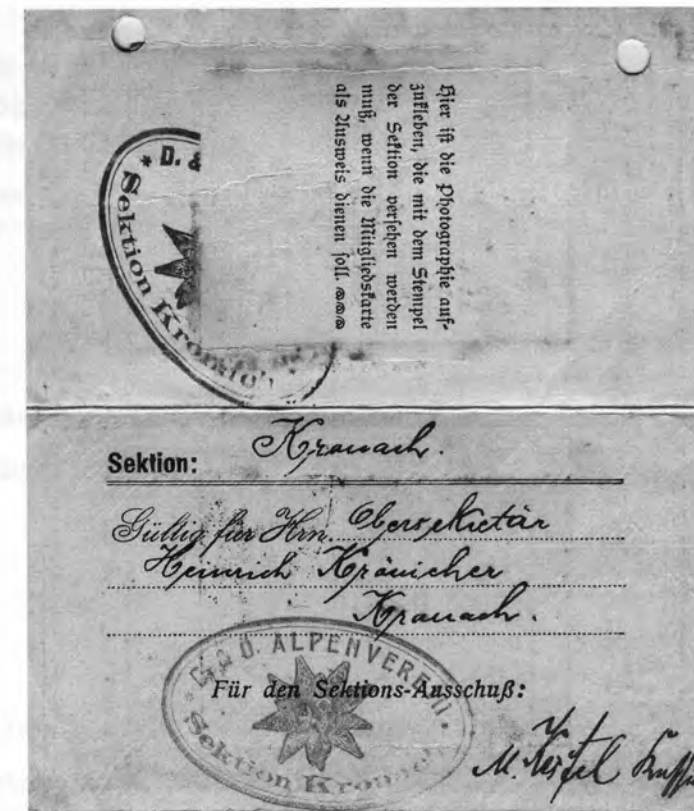 Hier ist die Photographie auf-
zukleben, die mit dem Stempel
der Sektion versehen werden
muß, wenn die Mitgliedskarte
als Ausweis dienen soll.
* D. &
Sektion Kronach
Sektion: Kronach.
Gültig für Hrn. Obersekretär
Heinrich
Kronach.
D. & Ö. ALPENVEREIN.
Für den Sektions-Ausschuß:
Sektion Kronach
M.